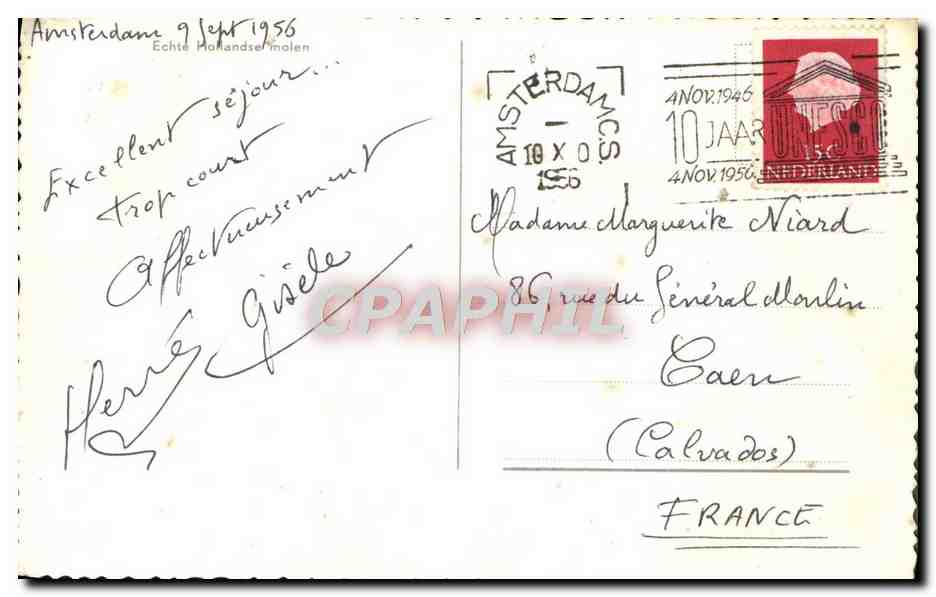 Amsterdam 9 Sept 1956
Echte Hollandse molen
Excellent séjour...
trop court
Affectueusement
Hervé Gisèle
AMSTERDAM C.S.
10 X 0
1956
4 NOV. 1946
10 JAAR UNESCO
4 NOV. 1956
15 c
NEDERLAND
Madame Marguerite Niard
86, rue du Général Moulin
Caen
(Calvados)
FRANCE
CPAPHIL